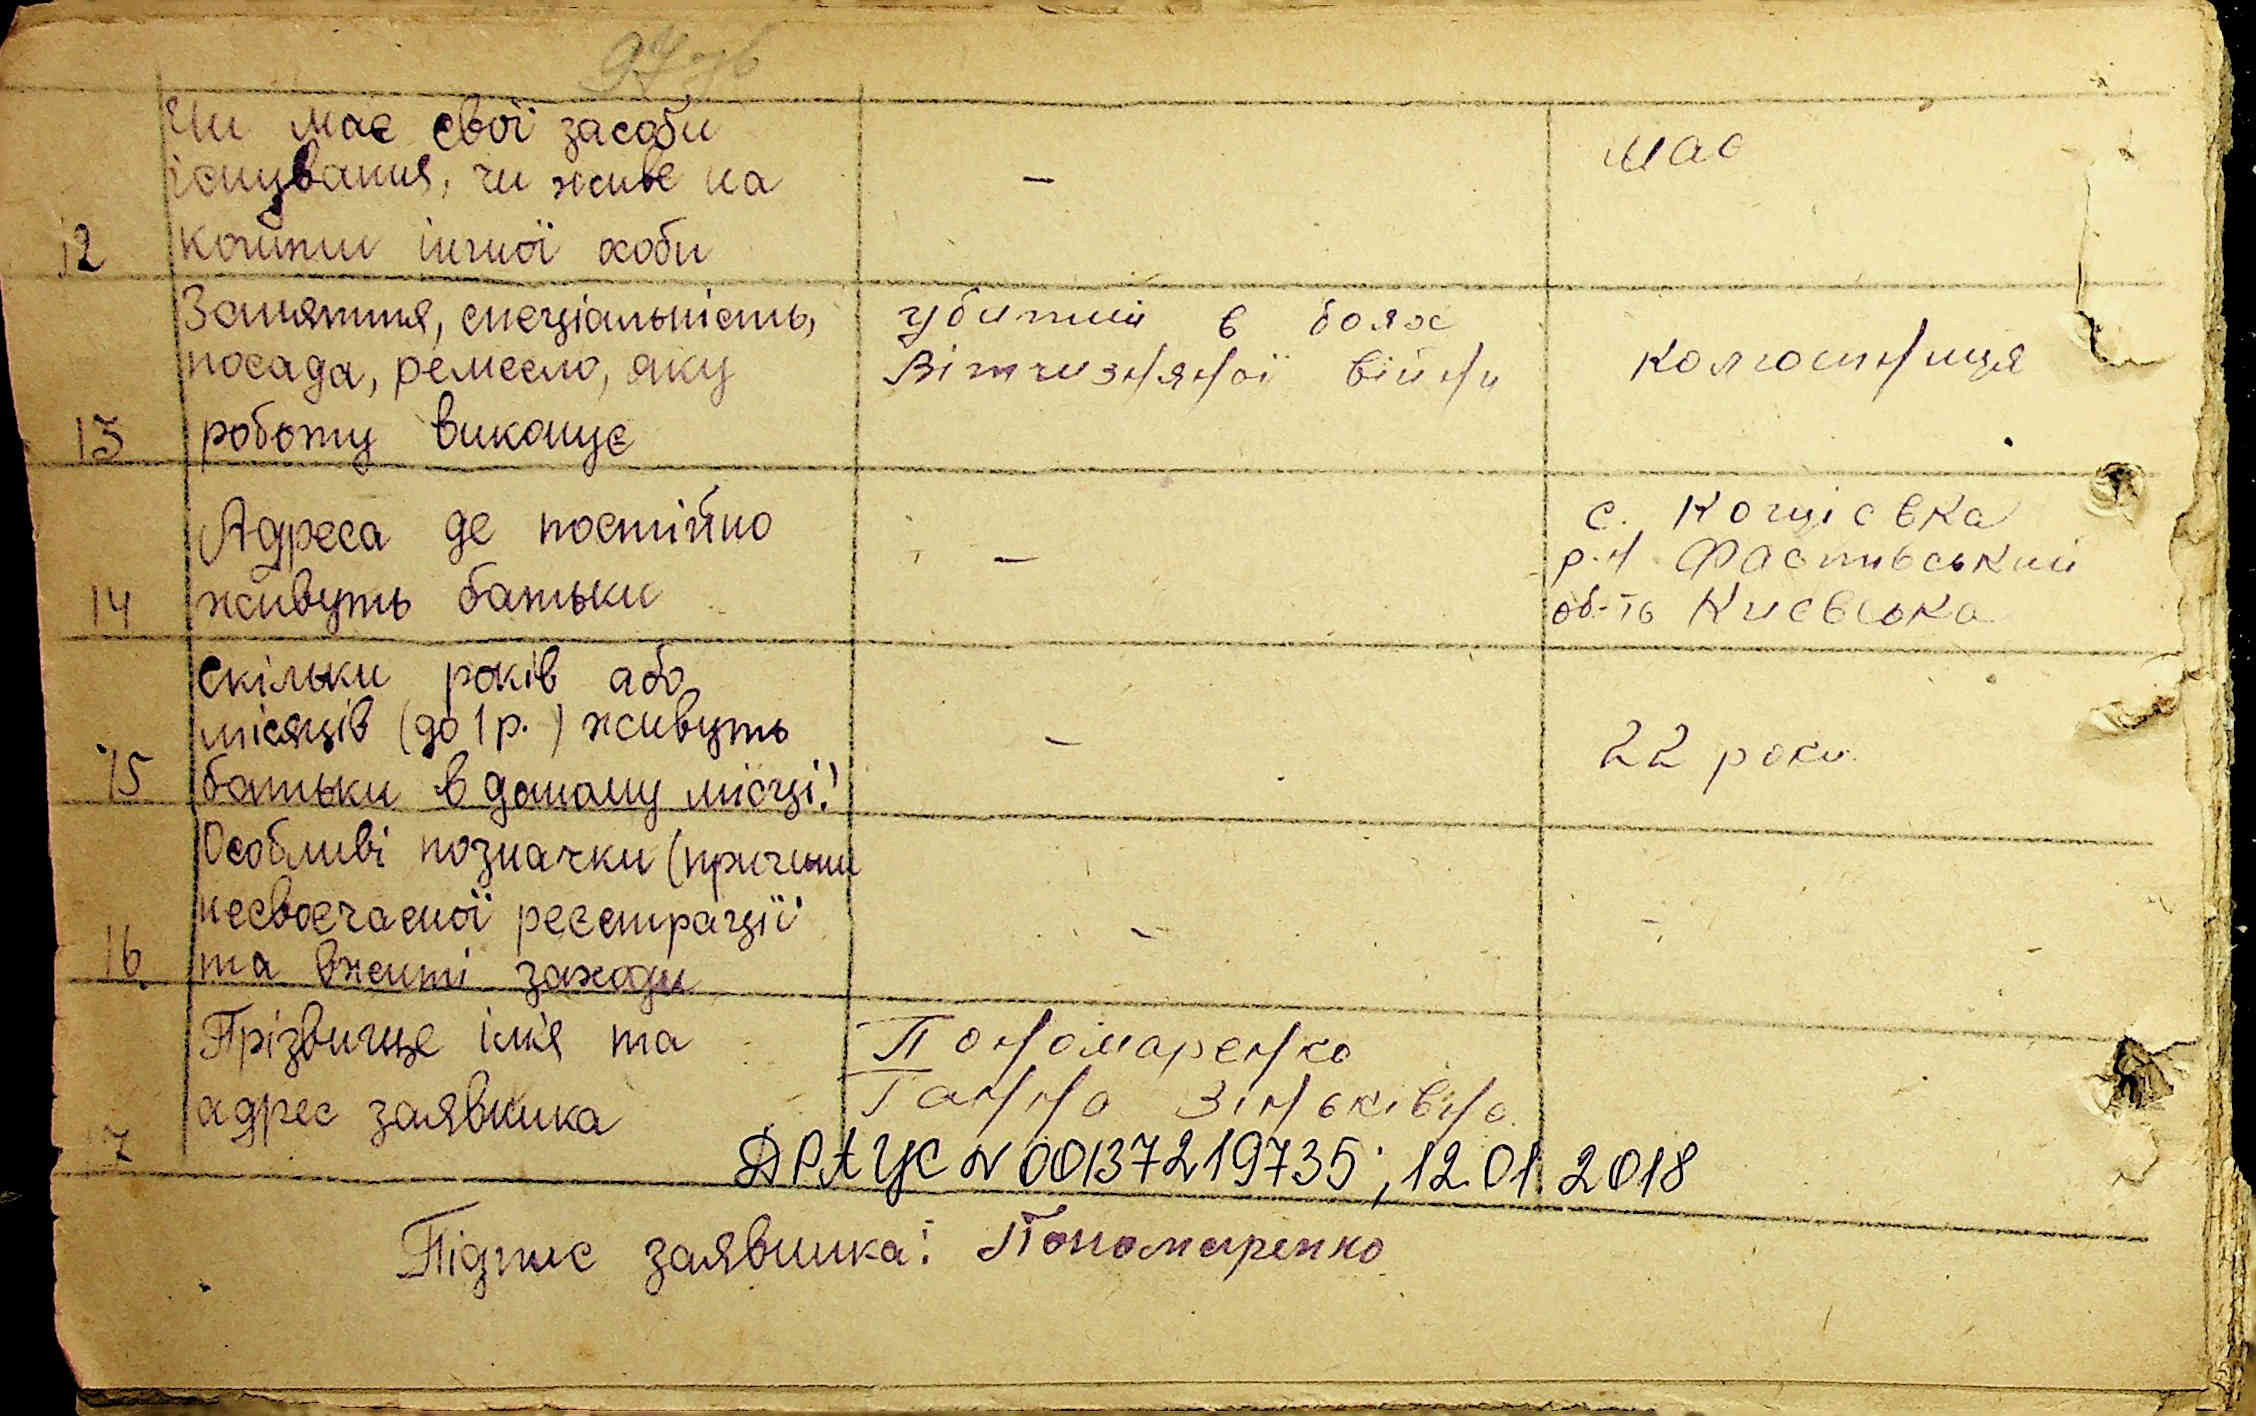 97 зв
Чи має свої засоби
існування, чи живе на
12 кошти іншої особи
—
має
Заняття, спеціальність,
посада, ремесло, яку
13 роботу виконує
убитий в боях
Вітчизняної війни
колгоспниця
Адреса де постійно
14 живуть батьки
—
с. Кощіевка
р.н Фастівський
об-ть Києвська
Скільки років або
місяців (до 1 р.) живуть
15 батьки в даному місці!
—
22 роки
Особливі позначки (причини
несвоєчасної реєстрації
16. та вжиті заходи
—
-
Прізвище ім'я та
адрес заявника
17
Пономаренко
Ганна Зіньківна
ДРАЦС N 00137219735; 12.01.2018
Підпис заявника: Пономаренко